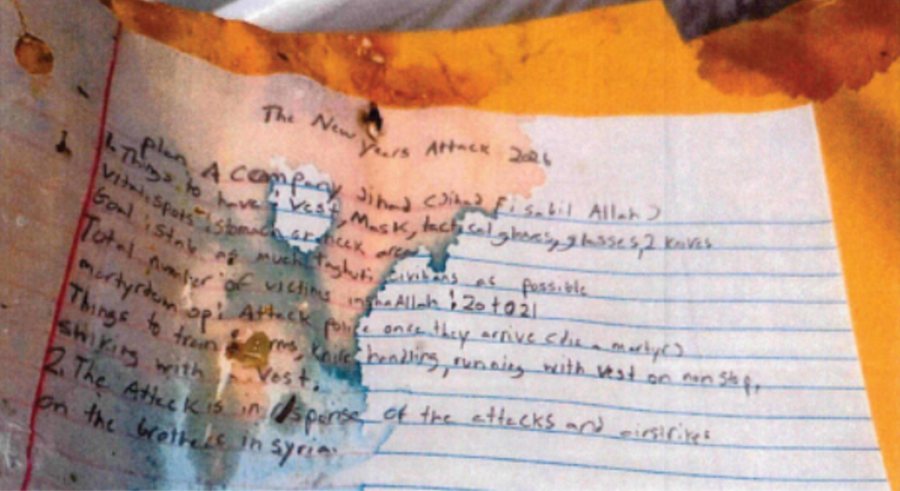 The New
Years Attack 2026
1. Plan A company Jihad (Jihad fi sabil Allah)
Things to have : vest, Mask, tactical gloves, glasses, 2 knives
Vital spots : stomach or neck area
Goal : stab as much taghuti civilians as possible
Total number of victims inshaAllah : 20 to 21
martyrdom op: Attack police once they arrive (die a martyr)
Things to train : knife handling, running with vest on non stop,
striking with vest.
2. The Attack is in of the attacks and airstrikes
on the brothers in syria.